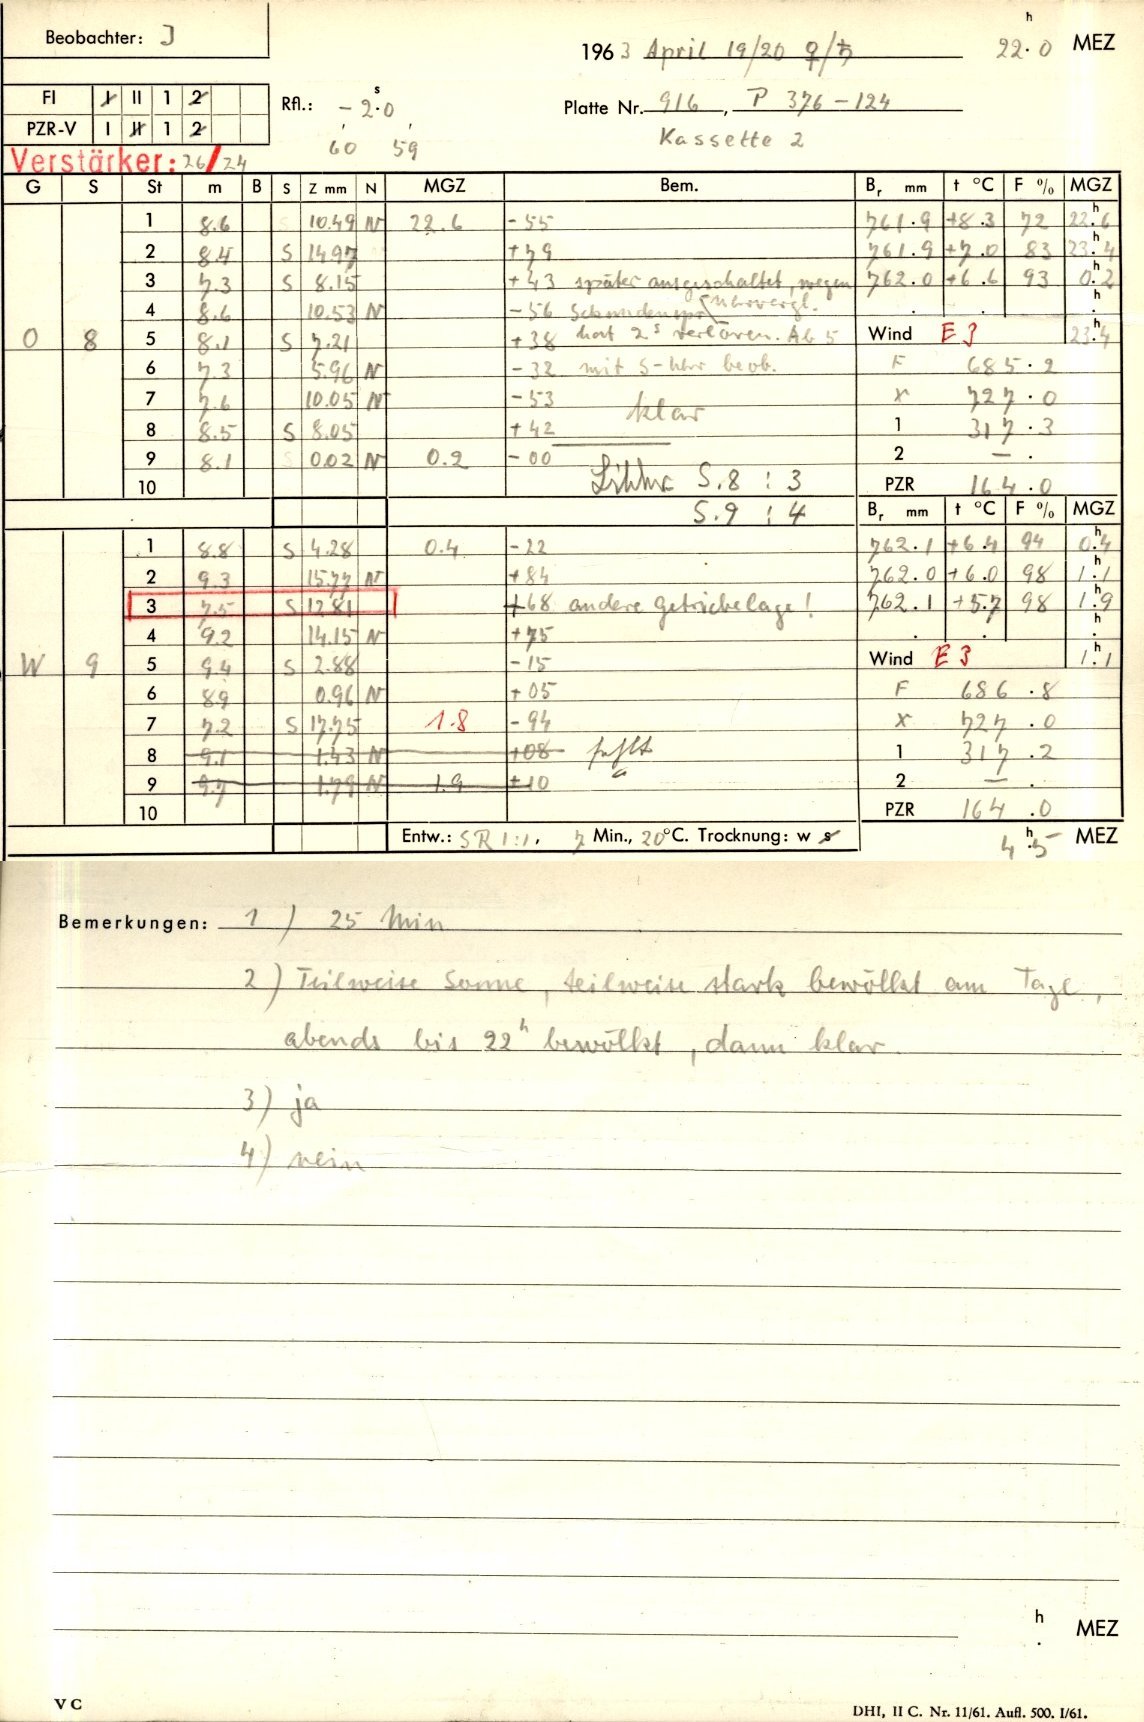 Beobachter: J
1963 April 19/20 ♀/♄ 22.0 h MEZ
FI I II 1 2
Rfl.: - 2.0 s
Platte Nr. 916, P 376-124
PZR-V I II 1 2
60 59
Kassette 2
Verstärker: 26/24
G S St m B S Z mm N MGZ Bem. Br mm t °C F % MGZ
1 8.6 10.49 N 22.6 -55 761.9 +8.3 72 22.6 h
2 8.4 S 14.97 +79 761.9 +7.0 83 23.4 h
3 7.3 S 8.15 +43 später ausgeschaltet, wegen 762.0 +6.6 93 0.2 h
4 8.6 10.53 N -56 Uhrvergl. . . h
O 8 5 8.1 S 7.21 +38 hat 2s verloren. Ab 5 Wind E 3 23.4 h
6 7.3 5.96 N -32 mit S-Uhr beob. F 685.2
7 7.6 10.05 N -53 klar X 727.0
8 8.5 S 8.05 +42 1 317.3
9 8.1 0.02 N 0.2 -00 2 — .
10 S.8 : 3 PZR 164.0
S.9 : 4 Br mm t °C F % MGZ
1 8.8 S 4.28 0.4 -22 762.1 +6.4 94 0.4 h
2 9.3 15.77 N +84 762.0 +6.0 98 1.1 h
3 7.5 S 12.81 +68 andere Getriebelage! 762.1 +5.7 98 1.9 h
4 9.2 14.15 N +75 . . h
W 9 5 9.4 S 2.88 -15 Wind E 3 1.1 h
6 8.9 0.96 N +05 F 686.8
7 7.2 S 17.75 1.8 -94 X 727.0
8 9.1 1.43 N +08 fehlt 1 317.2
9 9.7 1.79 N 1.9 +10 2 — .
10 PZR 164.0
Entw.: SR 1:1, 7 Min., 20°C. Trocknung: w s 4.5 h MEZ
Bemerkungen: 1) 25 Min
2) Teilweise Sonne, teilweise stark bewölkt am Tage,
abends bis 22h bewölkt, dann klar.
3) ja
4) nein
h . MEZ
V C
DHI, II C. Nr. 11/61. Aufl. 500. I/61.